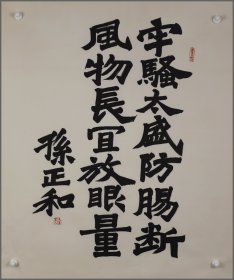 牢騷太盛防腸断
風物長宜放眼量
孫正和